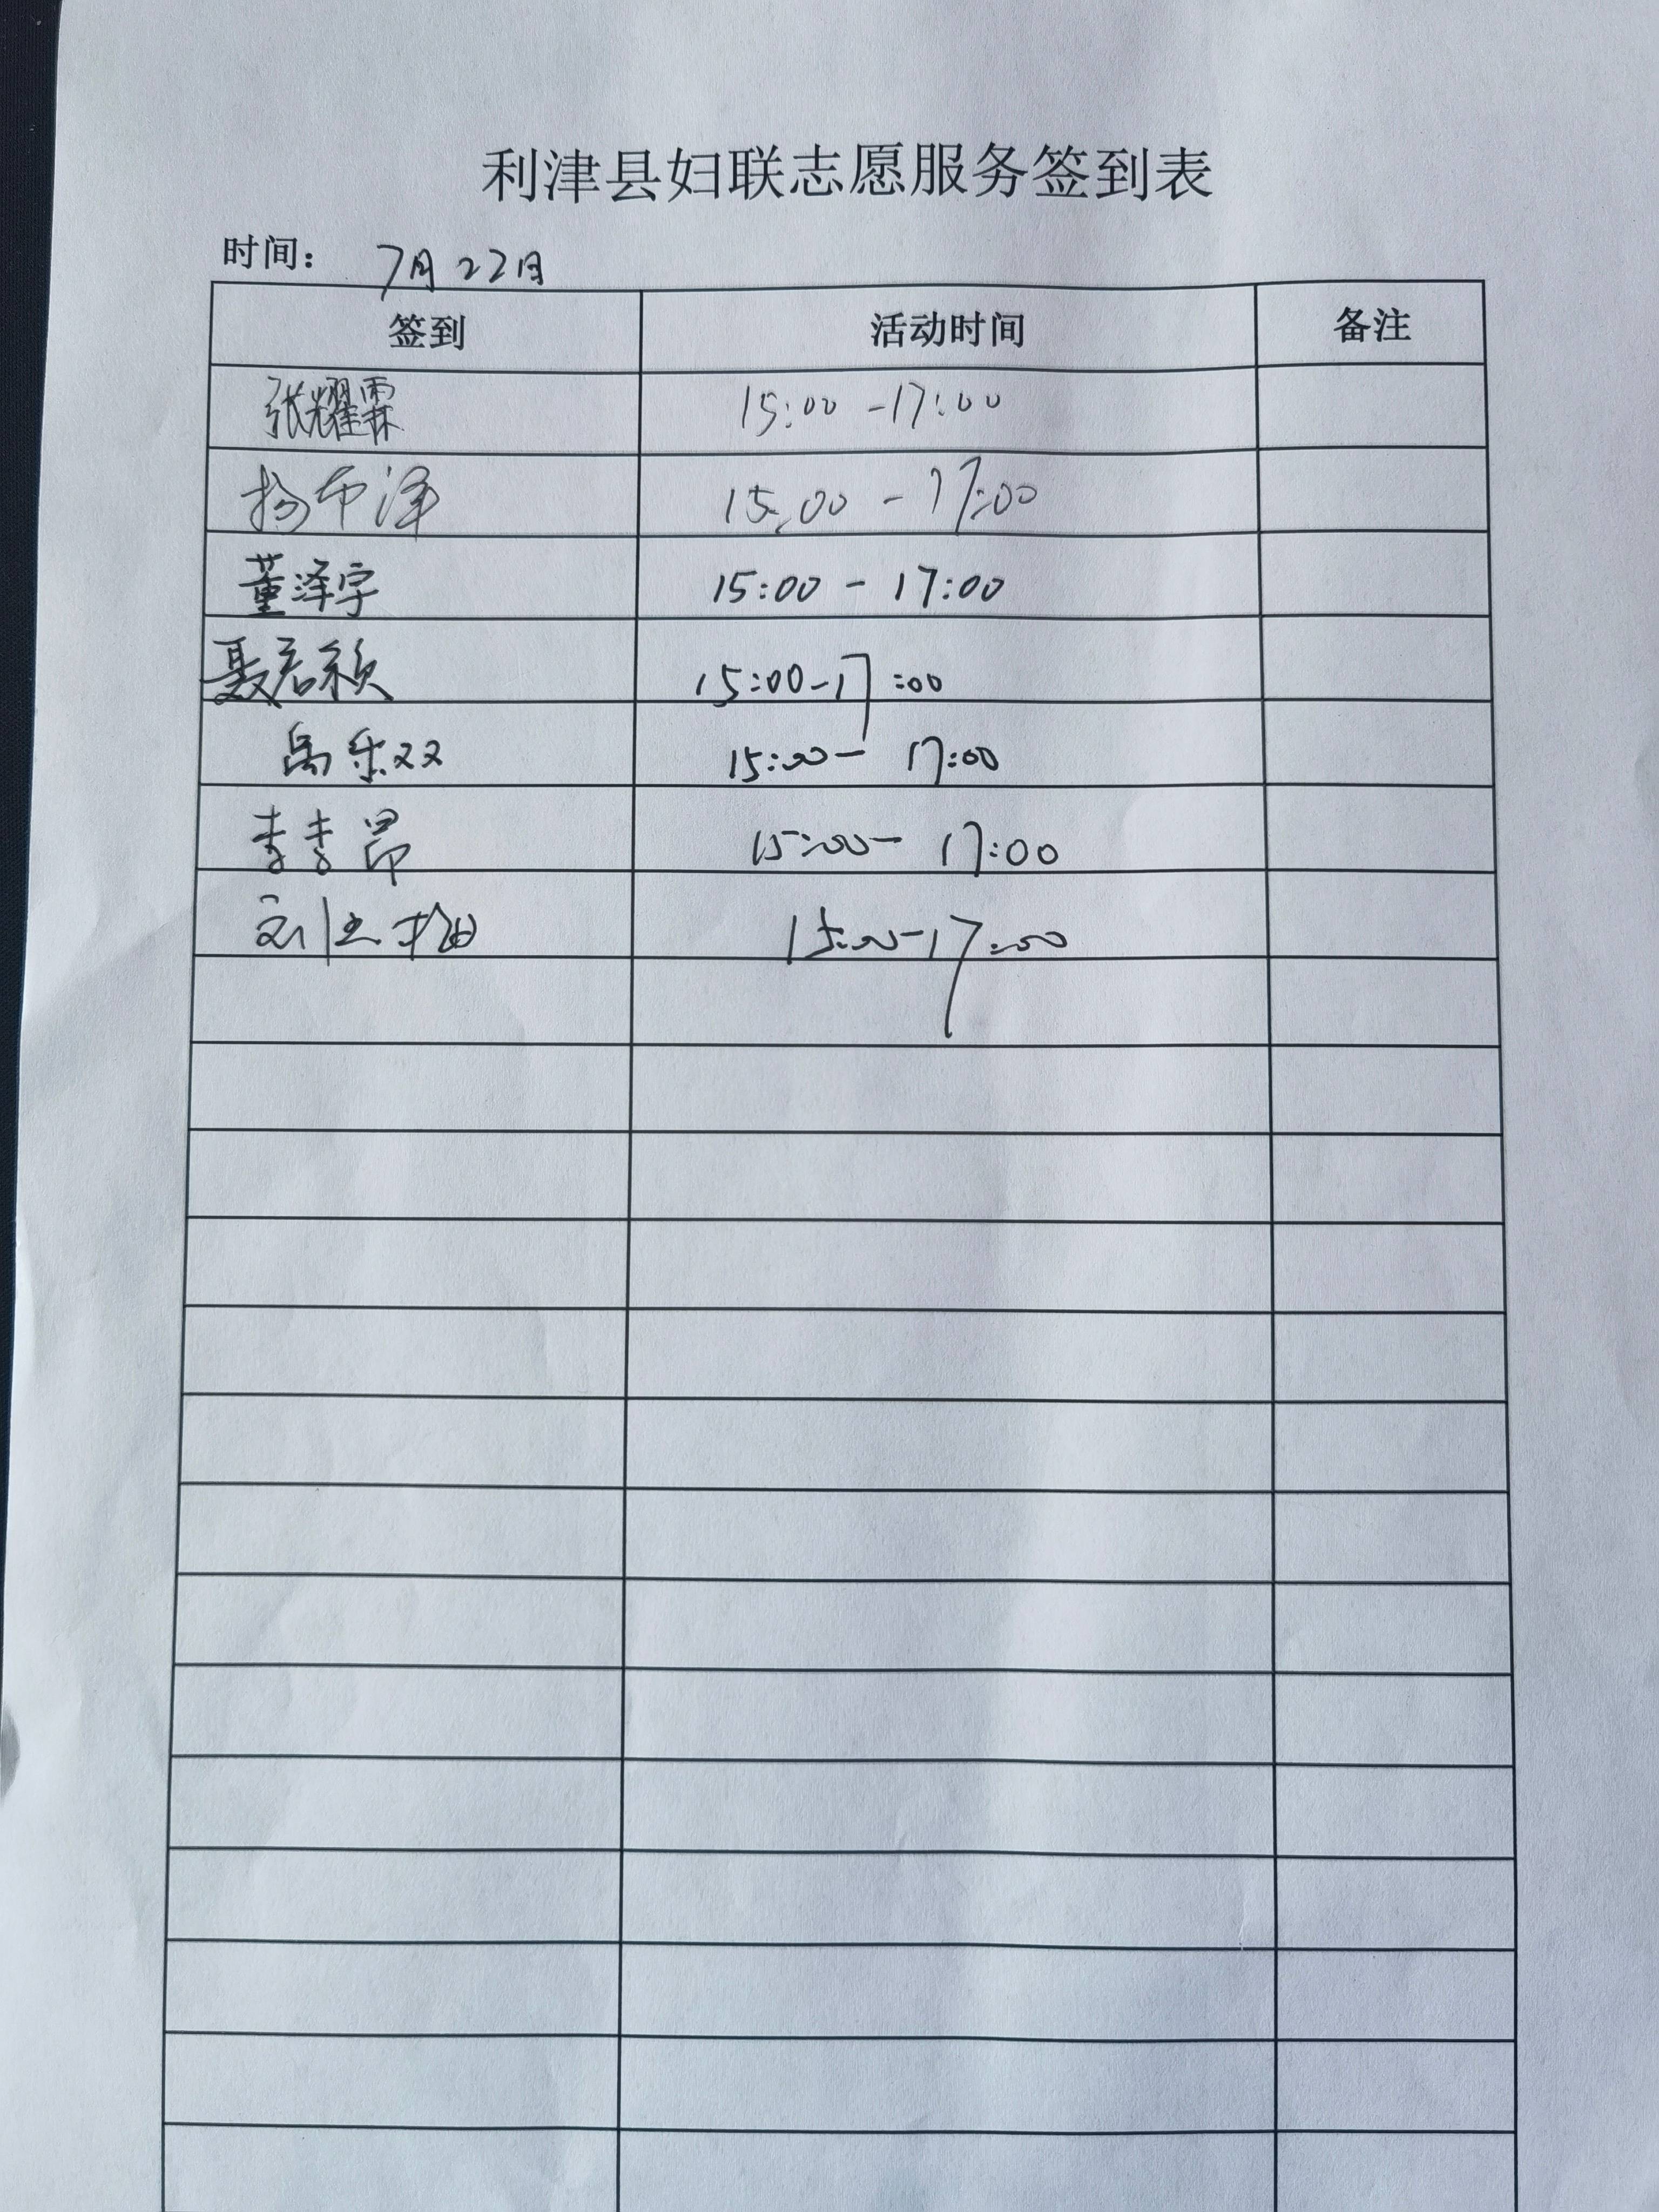 利津县妇联志愿服务签到表
时间： 7月22日
签到 活动时间 备注
张耀霖 15:00-17:00
杨布泽 15:00-17:00
董泽宇 15:00-17:00
聂君颖 15:00-17:00
禹乐双 15:00-17:00
李李昂 15:00-17:00
15:00-17:00